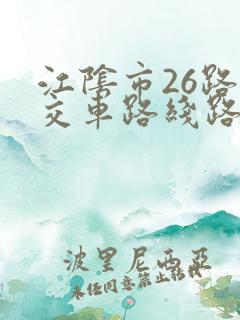 江陰市26路
交車路綫路
波里尼西亞
未经同意禁止转载